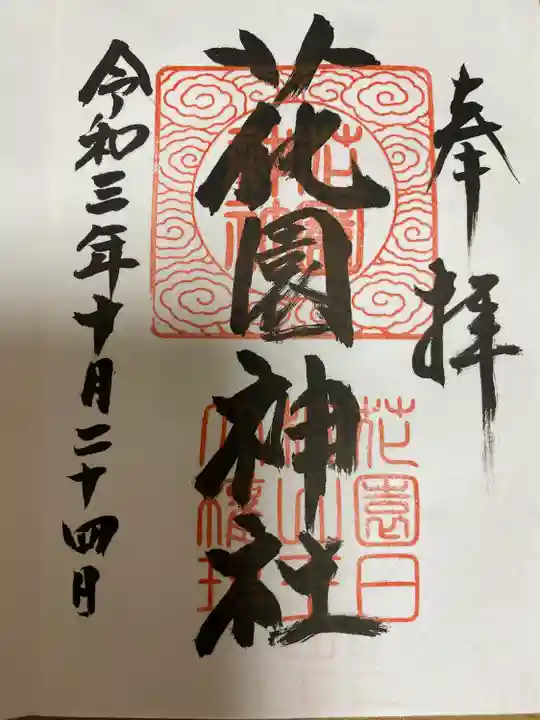 奉拝
花園神社
令和三年十月二十四月
花園
神社
花園日